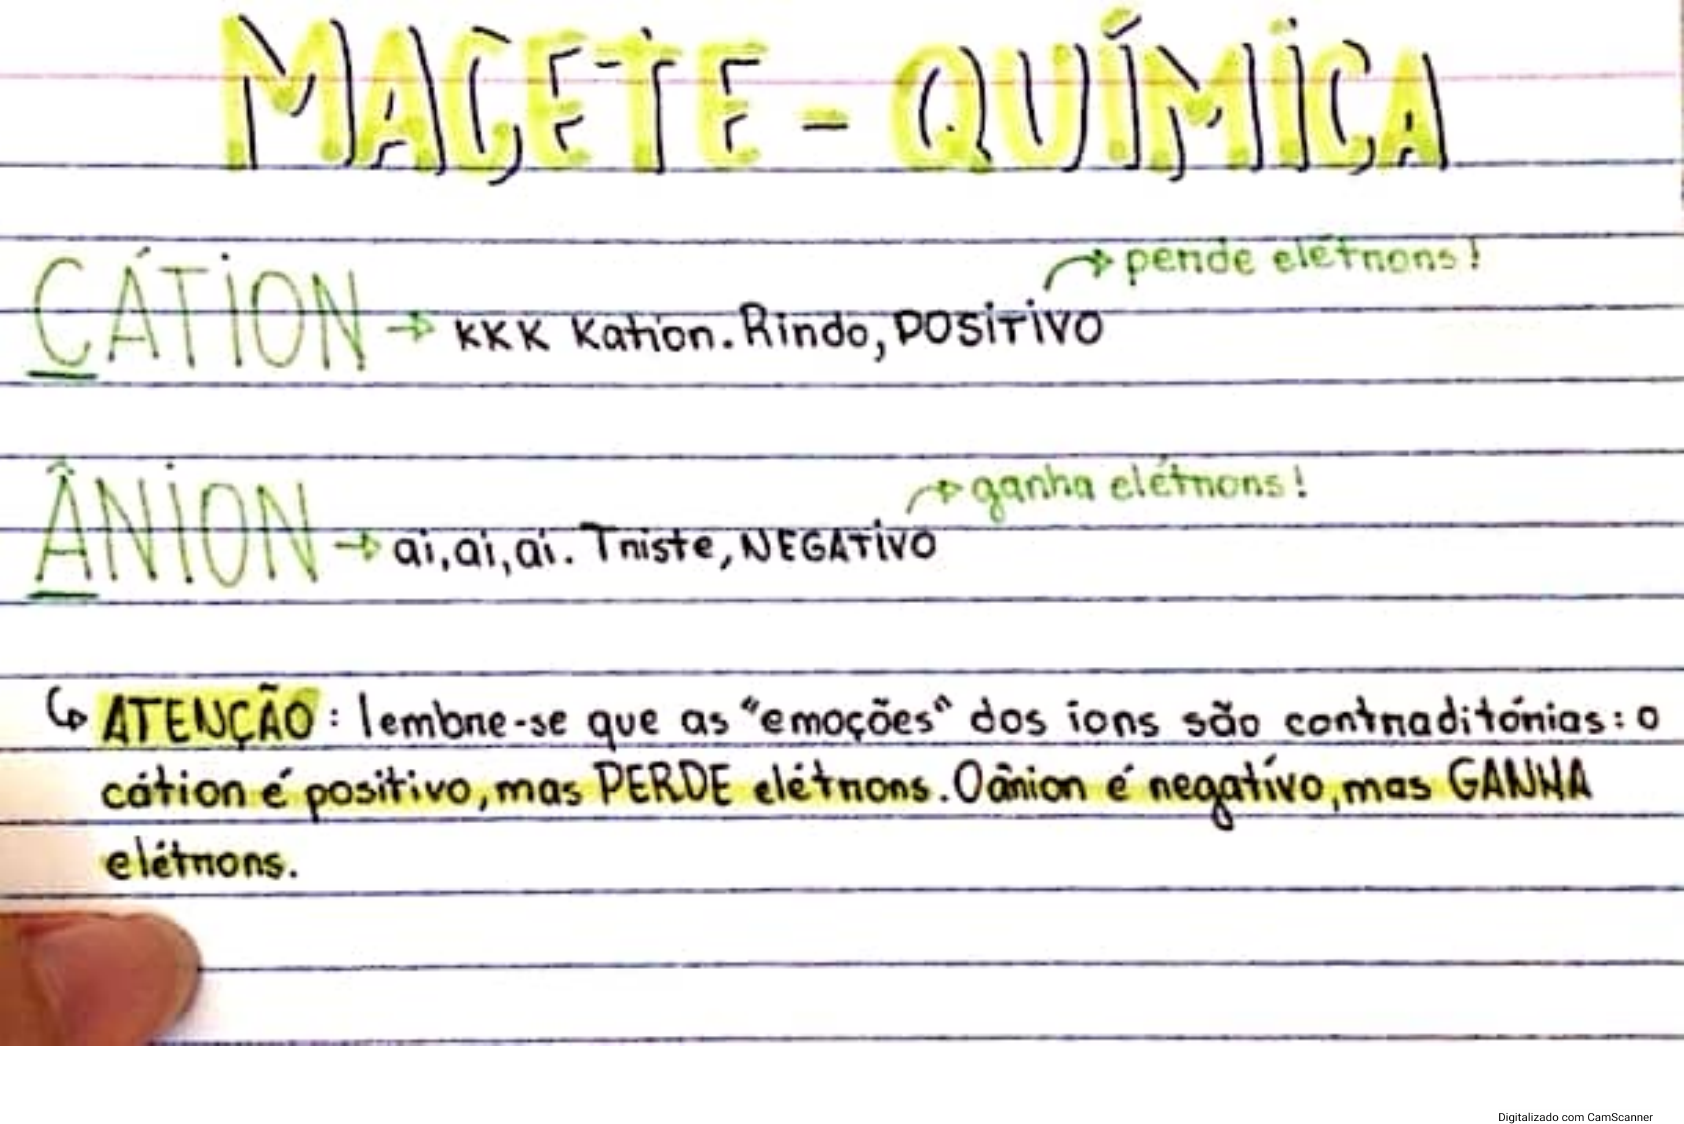 MACETE - QUÍMICA
perde elétrons!
CÁTION → KKK Kation. Rindo, POSITIVO
ganha elétrons!
ÂNION → ai, ai, ai. Triste, NEGATIVO
↳ ATENÇÃO: lembre-se que as "emoções" dos ions são contraditórias: o
cátion é positivo, mas PERDE elétrons. O ânion é negativo, mas GANHA
elétrons.
Digitalizado com CamScanner